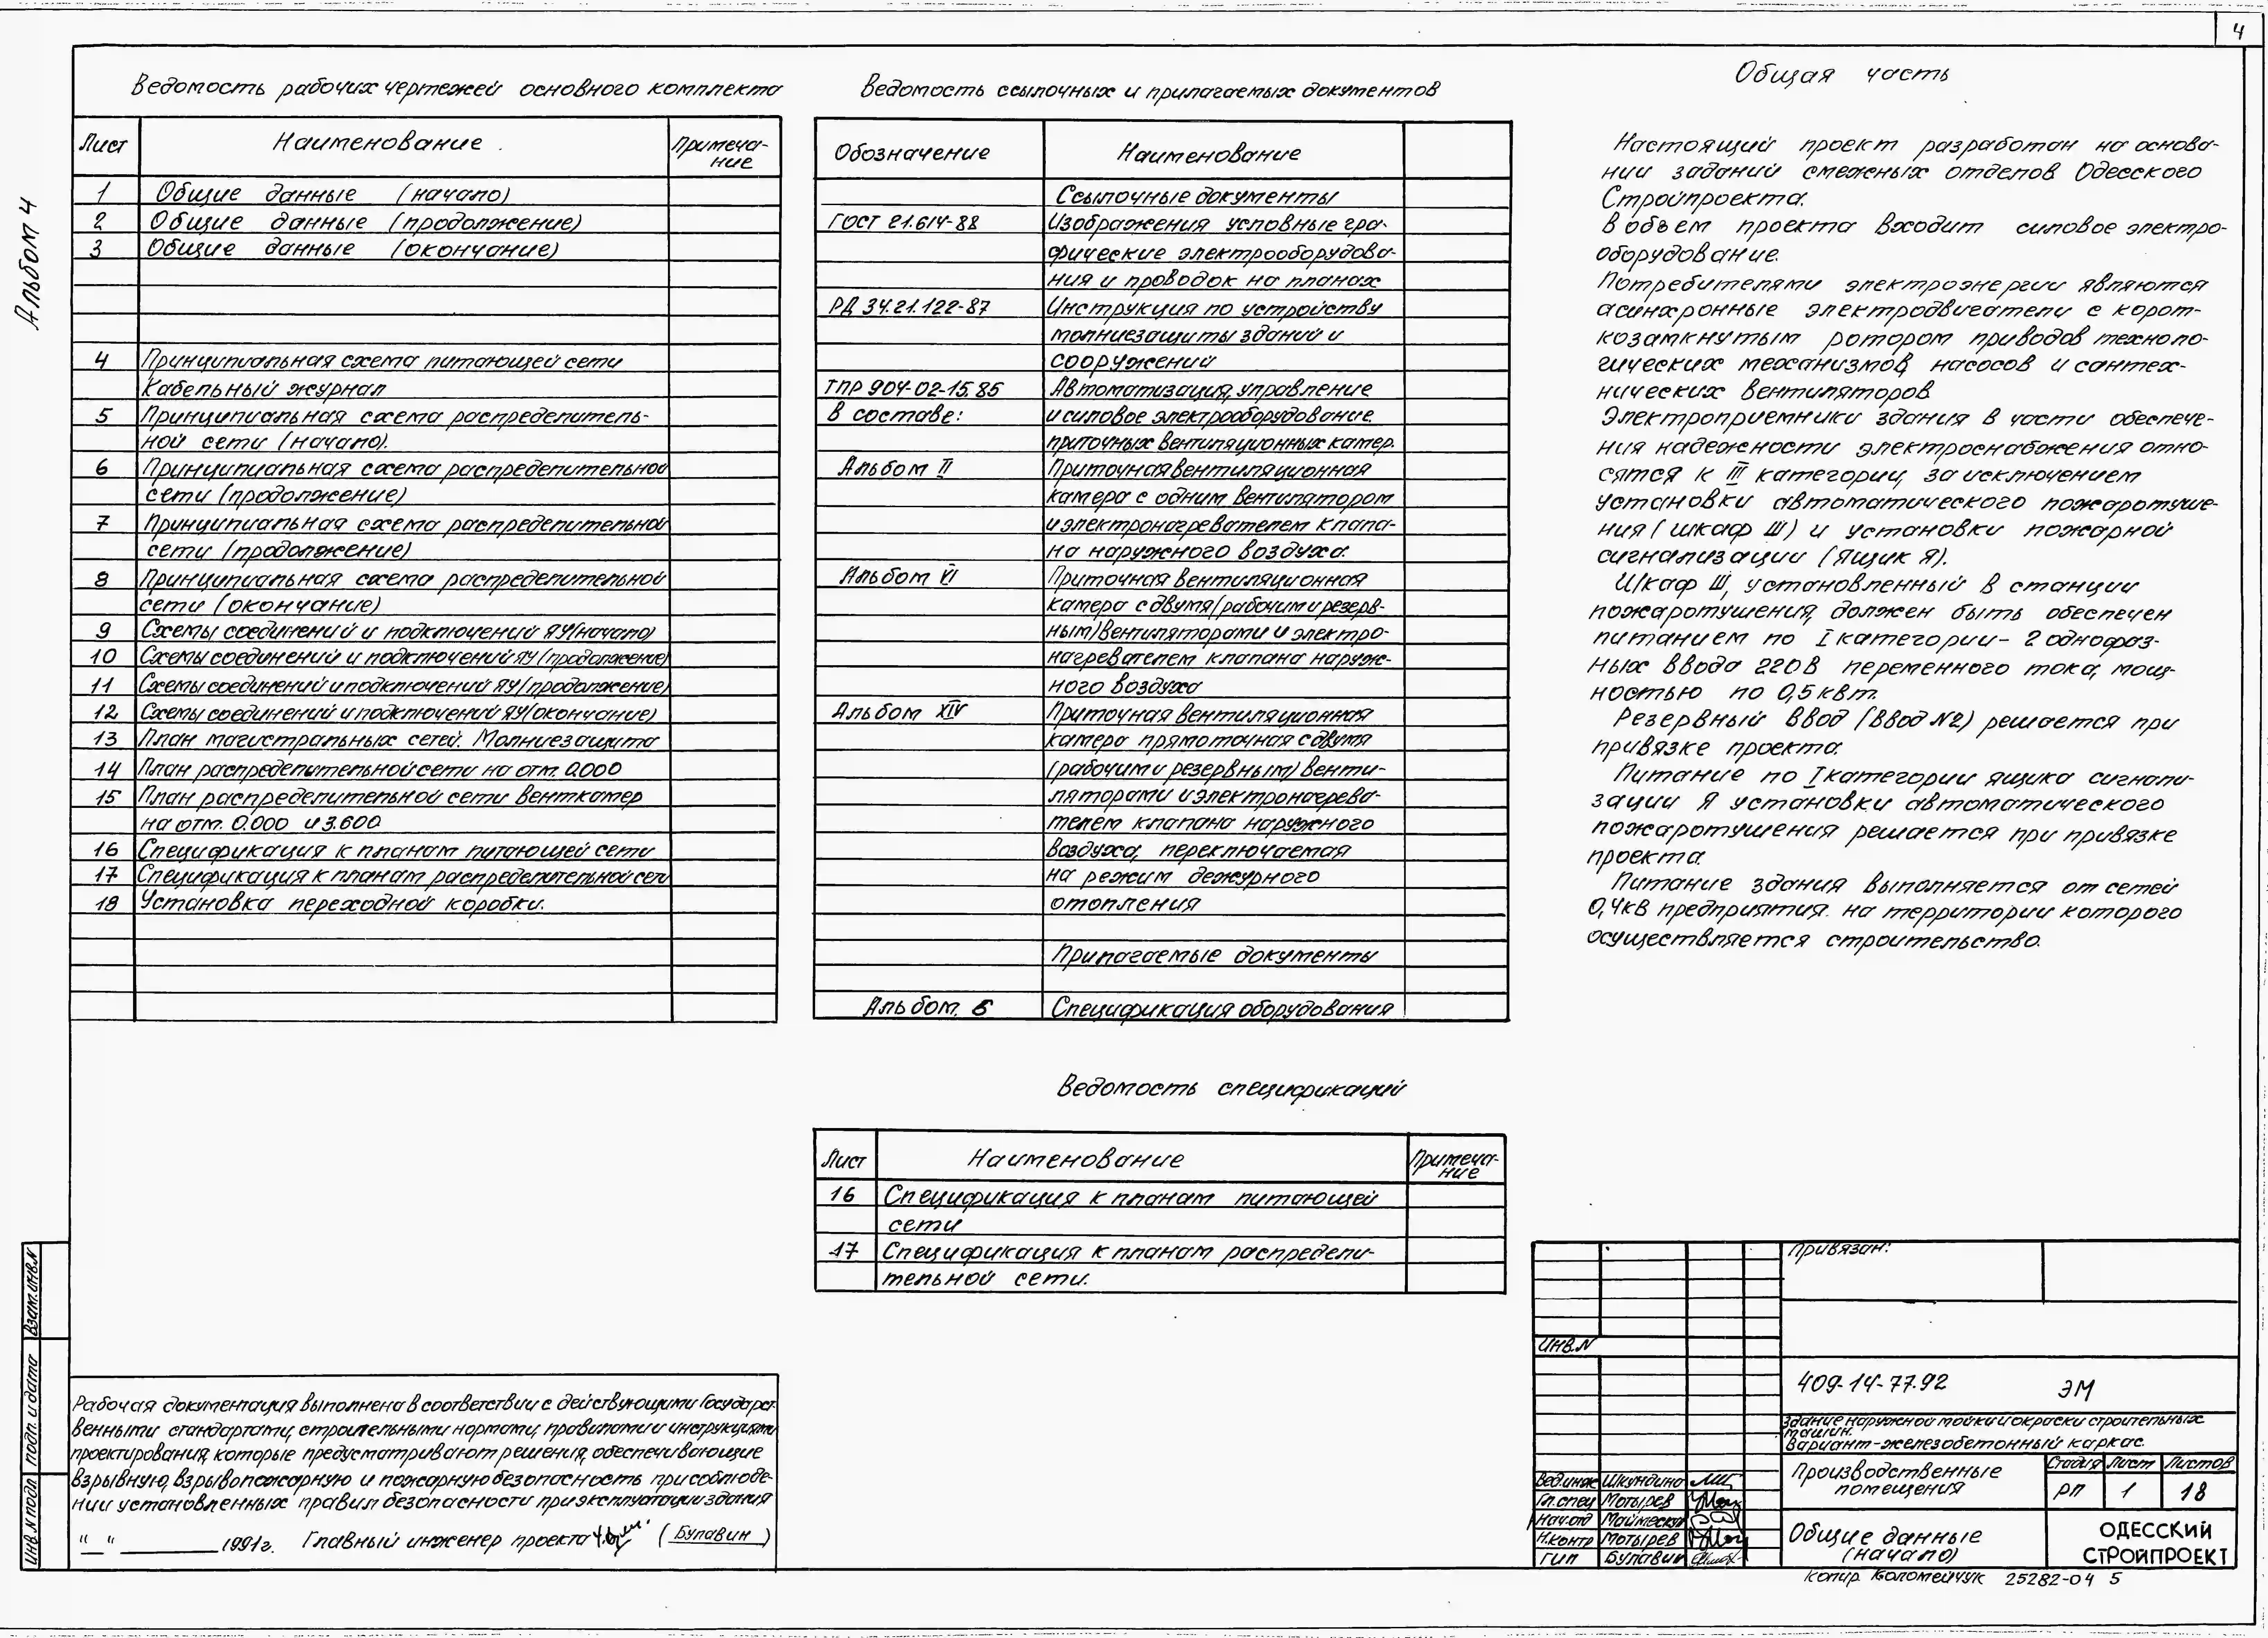 4
Альбом 4
Ведомость рабочих чертежей основного комплекта
Лист Наименование Примеча-
ние
1 Общие данные (начало)
2 Общие данные (продолжение)
3 Общие данные (окончание)
4 Принципиальная схема питающей сети
Кабельный журнал
5 Принципиальная схема распределитель-
ной сети (начало).
6 Принципиальная схема распределительной
сети (продолжение)
7 Принципиальная схема распределительной
сети (продолжение)
8 Принципиальная схема распределительной
сети (окончание)
9 Схемы соединений и подключений ЯУ(начало)
10 Схемы соединений и подключений ЯУ(продолжение)
11 Схемы соединений и подключений ЯУ(продолжение)
12 Схемы соединений и подключений ЯУ(окончание)
13 План магистральных сетей. Молниезащита
14 План распределительной сети на отм. 0.000
15 План распределительной сети венткамер
на отм. 0.000 и 3.600
16 Спецификация к планам питающей сети
17 Спецификация к планам распределительной сети
18 Установка переходной коробки.
Ведомость ссылочных и прилагаемых документов
Обозначение Наименование
Ссылочные документы
ГОСТ 21.614-88 Изображения условные гра-
фические электрооборудова-
ния и проводок на планах
РД 34.21.122-87 Инструкция по устройству
молниезащиты зданий и
сооружений
ТПР 904-02-15.85 Автоматизация, управление
В составе: и силовое электрооборудование
приточных вентиляционных камер.
Альбом II Приточная вентиляционная
камера с одним вентилятором
и электронагревателем клапа-
на наружного воздуха.
Альбом VI Приточная вентиляционная
камера с двумя (рабочим и резерв-
ным) вентиляторами и электро-
нагревателем клапана наруж-
ного воздуха
Альбом XIV Приточная вентиляционная
камера прямоточная с двумя
(рабочим и резервным) венти-
ляторами и электронагрева-
телем клапана наружного
воздуха, переключаемая
на режим дежурного
отопления
Прилагаемые документы
Альбом. 6 Спецификация оборудования
Ведомость спецификаций
Лист Наименование Примеча-
ние
16 Спецификация к планам питающей
сети
17 Спецификация к планам распредели-
тельной сети.
Общая часть
Настоящий проект разработан на основа-
нии заданий смежных отделов Одесского
Стройпроекта.
В объем проекта входит силовое электро-
оборудование.
Потребителями электроэнергии являются
асинхронные электродвигатели с корот-
козамкнутым ротором приводов техноло-
гических механизмов, насосов и сантех-
нических вентиляторов
Электроприемники здания в части обеспече-
ния надежности электроснабжения отно-
сятся к III категории, за исключением
установки автоматического пожаротуше-
ния (шкаф Ш) и установки пожарной
сигнализации (ящик Я).
Шкаф Ш, установленный в станции
пожаротушения, должен быть обеспечен
питанием по I категории- 2 однофаз-
ных ввода 220В переменного тока, мощ-
ностью по 0,5 квт.
Резервный ввод (ввод №2) решается при
привязке проекта.
Питание по I категории ящика сигнали-
зации Я установки автоматического
пожаротушения решается при привязке
проекта.
Питание здания выполняется от сетей
0,4кВ предприятия. на территории которого
осуществляется строительство.
Рабочая документация выполнена в соответствии с действующими Государст-
венными стандартами, строительными нормами, правилами и инструкциями
проектирования, которые предусматривают решения, обеспечивающие
взрывную, взрывопожарную и пожарную безопасность при соблюде-
нии установленных правил безопасности при эксплуатации здания
" " 1991г. Главный инженер проекта (Булавин)
Взам.инв.N
Подп. и дата
Инв.N подл
Привязан:
Инв.N
409-14-77.92 ЭМ
Здание наружной мойки и окраски строительных
машин.
Вариант-железобетонный каркас.
Производственные
помещения
Стадия Лист Листов
РП 1 18
Общие данные
(начало)
ОДЕССКИЙ
СТРОЙПРОЕКТ
Вед.инж Шкундина
Гл.спец Мотырев
Нач.отд
Н.контр Мотырев
ГИП Булавин
Копир. Коломейчук 25282-04 5